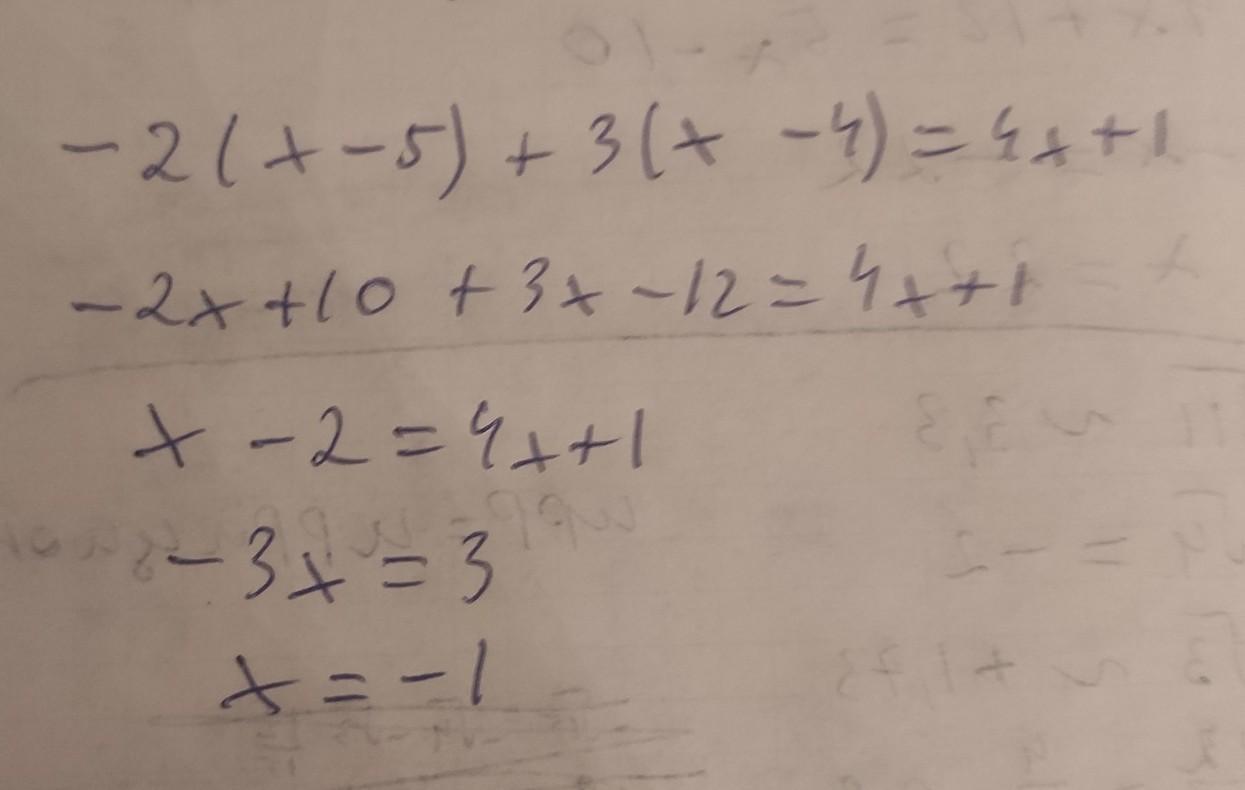 -2(x-5)+3(x-4)=4x+1
-2x+10+3x-12=4x+1
x-2=4x+1
-3x=3
x=-1